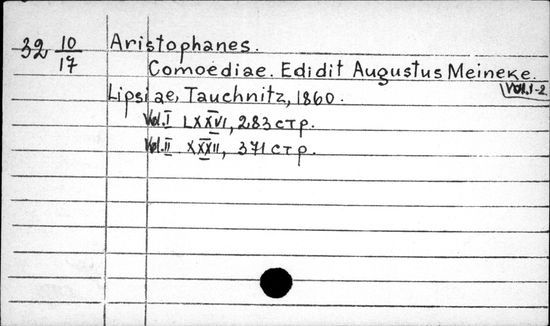 32 10/17 Aristophanes.
Comoediae. Edidit Augustus Meineke.
Vol. 1-2
Lipsiae, Tauchnitz, 1860.
Vol. I LXXVI, 283 стр.
Vol. II XXXII, 371 стр.